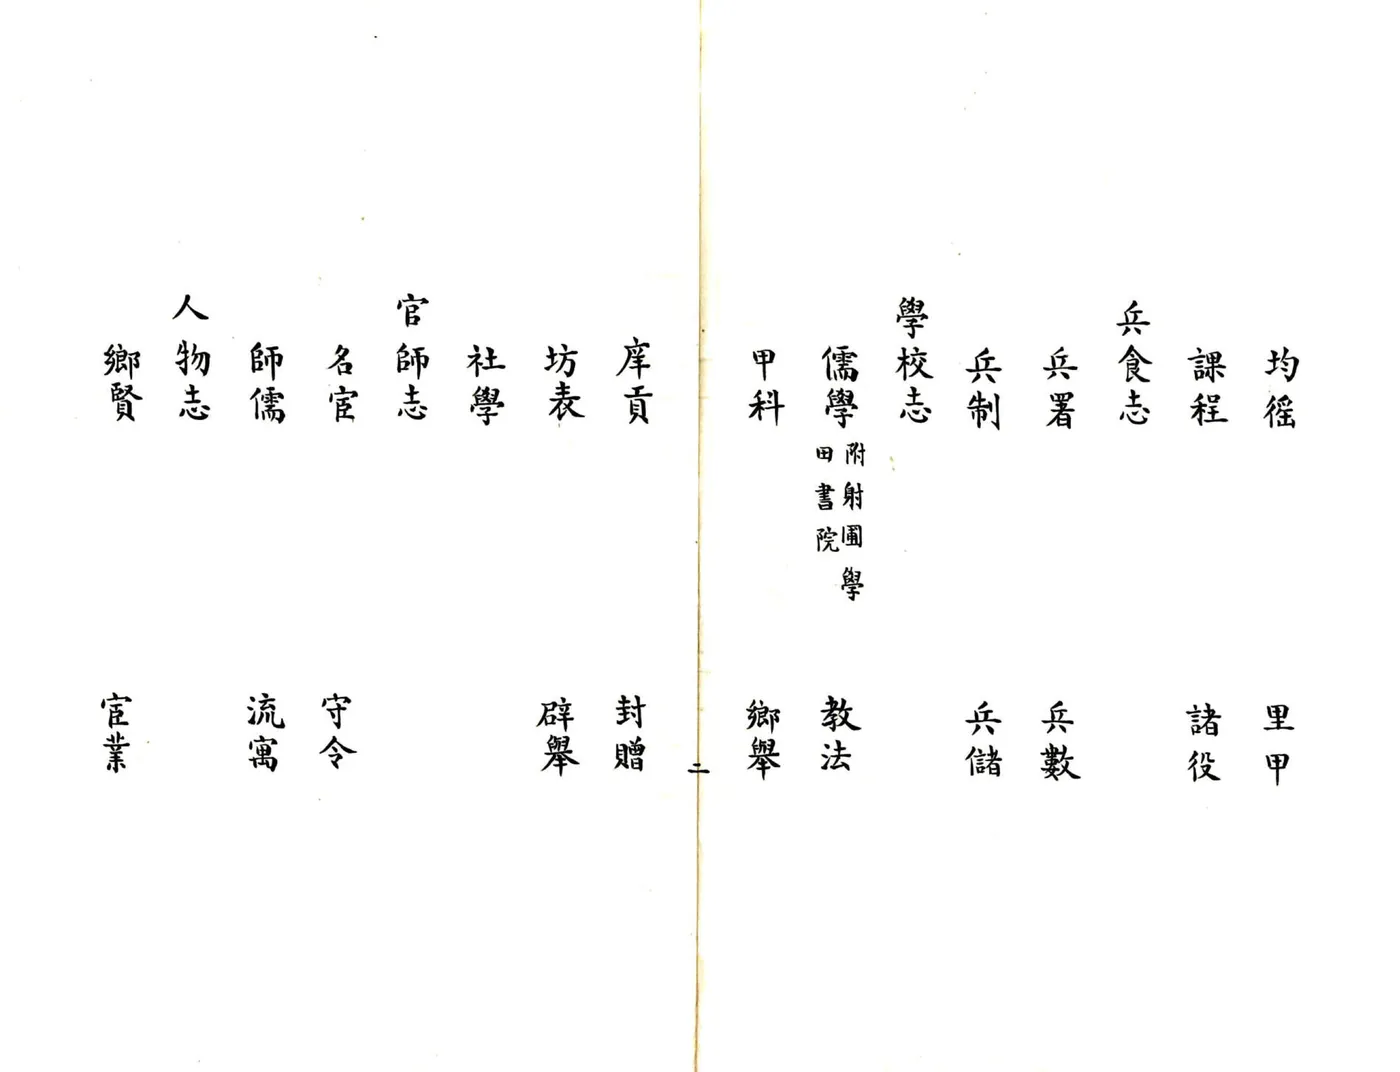 均徭　里甲
課程　諸役
兵食志
兵署　兵數
兵制　兵儲
學校志
儒學　附射圃學田書院　教法
甲科　鄉舉
二
庠貢　封贈
坊表　辟舉
社學
官師志
名宦　守令
師儒　流寓
人物志
鄉賢　宦業